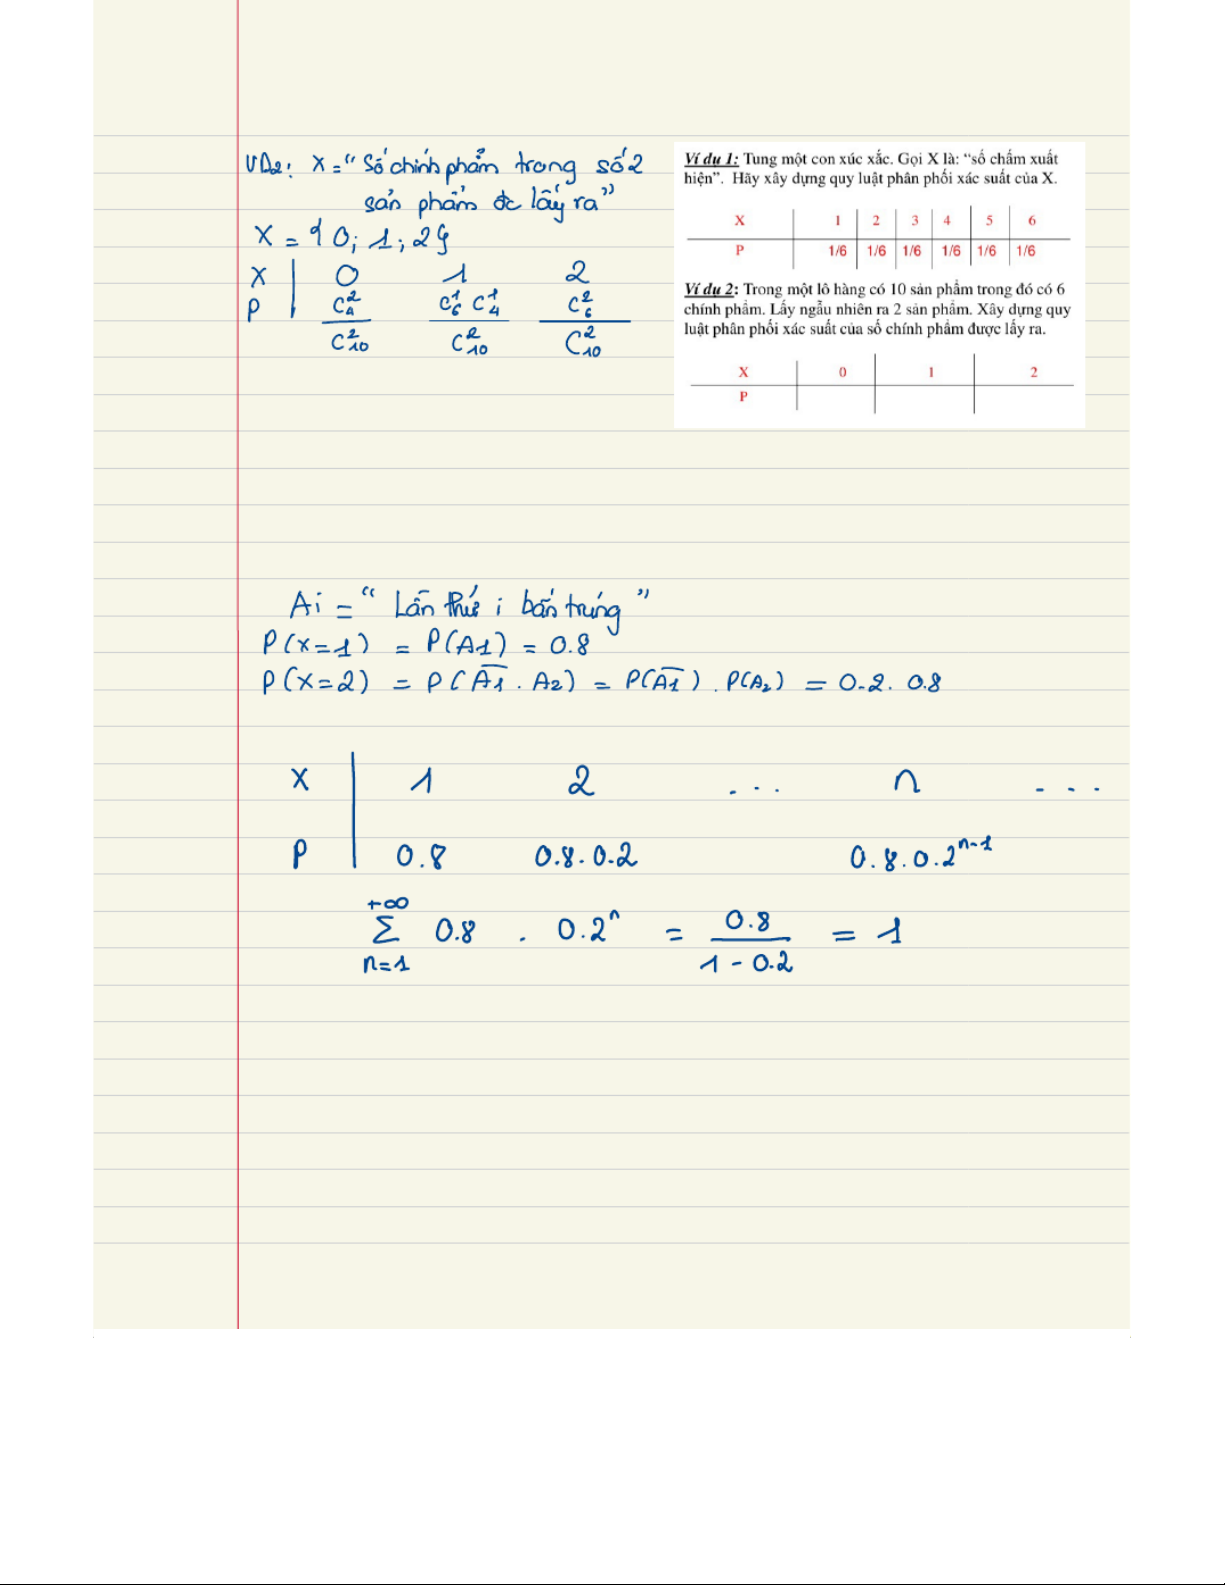 VD2: X = "Số chính phẩm trong số 2
sản phẩm đc lấy ra"
X = {0; 1; 2}
X | 0 1 2
P | C₄²/C₁₀² C₆¹ C₄¹/C₁₀² C₆²/C₁₀²
Ví dụ 1: Tung một con xúc xắc. Gọi X là: "số chấm xuất
hiện". Hãy xây dựng quy luật phân phối xác suất của X.
X 1 2 3 4 5 6
P 1/6 1/6 1/6 1/6 1/6 1/6
Ví dụ 2: Trong một lô hàng có 10 sản phẩm trong đó có 6
chính phẩm. Lấy ngẫu nhiên ra 2 sản phẩm. Xây dựng quy
luật phân phối xác suất của số chính phẩm được lấy ra.
X 0 1 2
P
Ai = "Lần thứ i bắn trúng"
P(X=1) = P(A1) = 0.8
P(X=2) = P(A̅1̅ . A2) = P(A̅1̅) . P(A2) = 0.2 . 0.8
X | 1 2 ... n ...
P | 0.8 0.8 . 0.2 0.8 . 0.2ⁿ⁻¹
+∞
Σ 0.8 . 0.2ⁿ = 0.8/(1 - 0.2) = 1
n=1